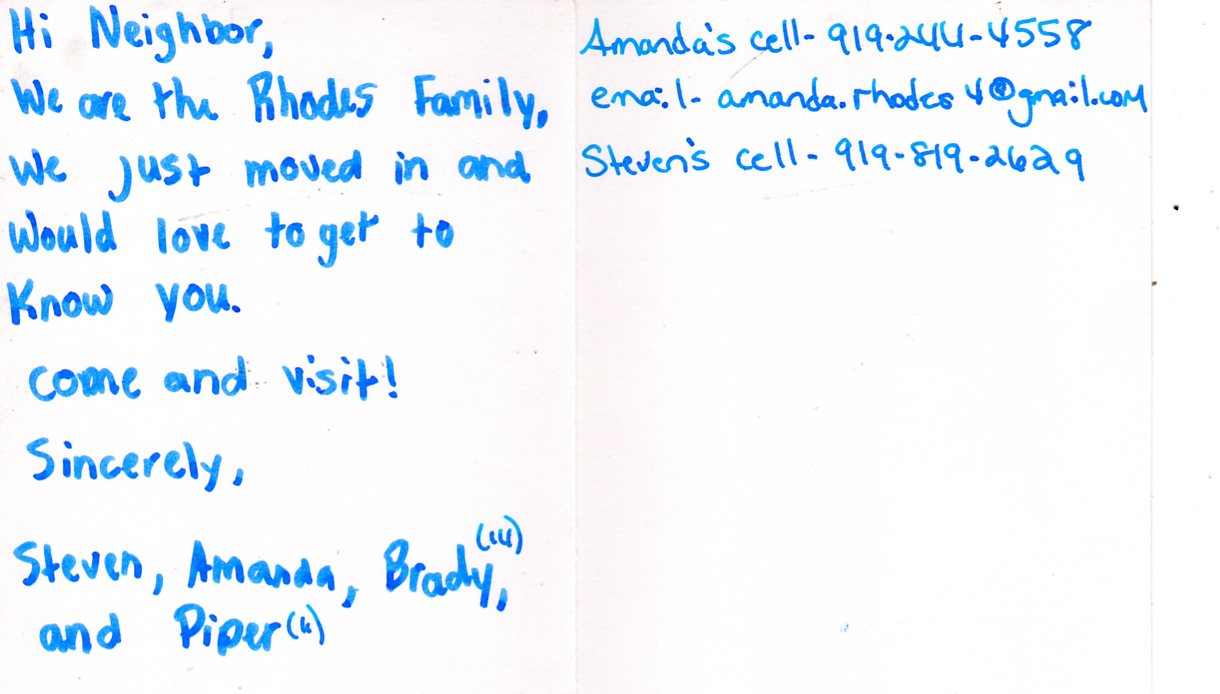 Hi Neighbor,
We are the Rhodes Family,
We just moved in and
Would love to get to
Know you.
come and visit!
Sincerely,
Steven, Amanda, Brady,
and Piper
Amanda's cell- 919-244-4558
email- amanda.rhodes4@gmail.com
Steven's cell- 919-819-2629